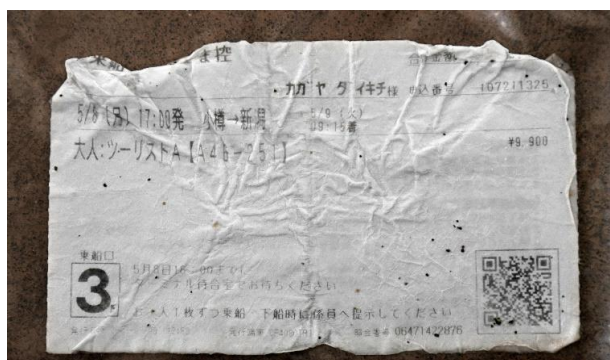 ま控
カガヤ ダイキチ様 申込番号 107211325
5/8 (月) 17:00発 小樽→新潟 5/9 (火) 09:15着
大人:ツーリストA【A46-251】 ¥9,900
乗船口
3
5月8日16:00までに
ターミナル待合室でお待ちください
お一人1枚ずつ乗船・下船時に係員へ提示してください
照合番号 06471422876